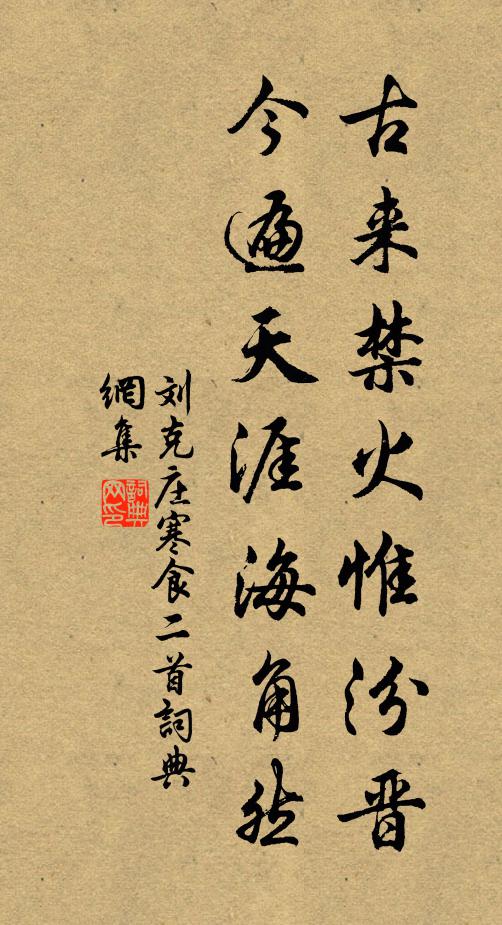 古来禁火惟汾晋
今遍天涯海角然
刘克庄寒食二首詞典
網集
詞典
网印